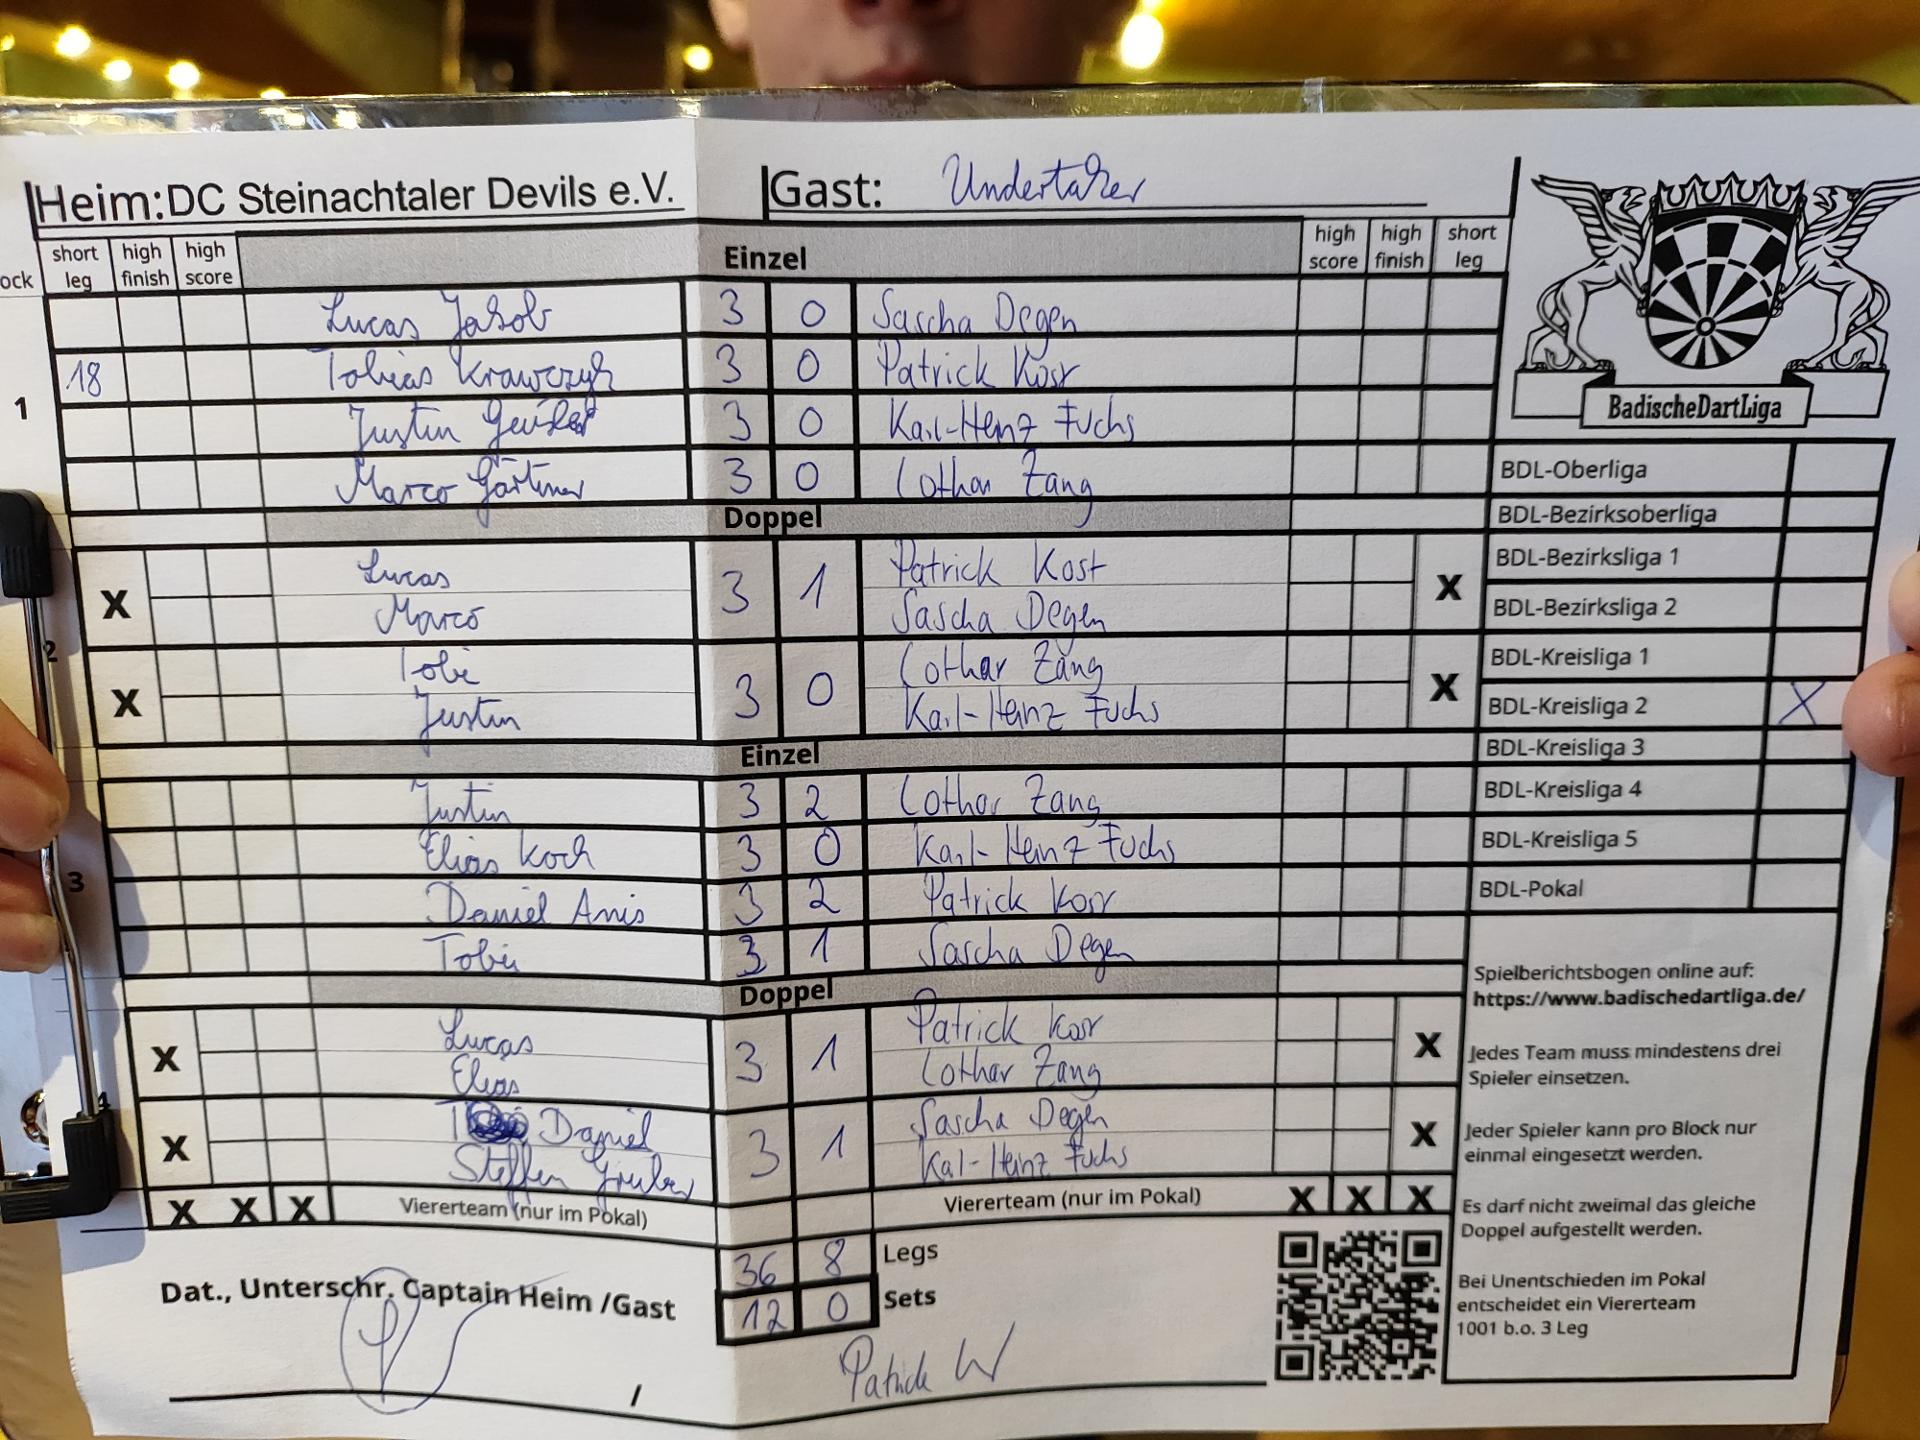 Heim: DC Steinachtaler Devils e.V. Gast: Undertaker
ock short leg high finish high score Einzel high score high finish short leg
Lucas Jakob 3 0 Sascha Degen
18 Tobias Krawczyk 3 0 Patrick Kost
1
Justin 3 0 Karl-Heinz Fuchs
Marco Gärtner 3 0 Lothar Zang
Doppel
Lucas Patrick Kost
X 3 1 X
Marco Sascha Degen
2
Tobi Lothar Zang
X 3 0 X
Justin Karl-Heinz Fuchs
Einzel
Justin 3 2 Lothar Zang
Elias Koch 3 0 Karl-Heinz Fuchs
3
Daniel Anis 3 2 Patrick Kost
Tobi 3 1 Sascha Degen
Doppel
Lucas Patrick Kost
X 3 1 X
Elias Lothar Zang
4
Daniel Sascha Degen
X 3 1 X
Steffen Gruber Kal-Heinz Fuchs
X X X Viererteam (nur im Pokal) Viererteam (nur im Pokal) X X X
36 8 Legs
12 0 Sets
Dat., Unterschr. Captain Heim /Gast
/ Patrick W
BadischeDartLiga
BDL-Oberliga
BDL-Bezirksoberliga
BDL-Bezirksliga 1
BDL-Bezirksliga 2
BDL-Kreisliga 1
BDL-Kreisliga 2 X
BDL-Kreisliga 3
BDL-Kreisliga 4
BDL-Kreisliga 5
BDL-Pokal
Spielberichtsbogen online auf:
https://www.badischedartliga.de/
Jedes Team muss mindestens drei
Spieler einsetzen.
Jeder Spieler kann pro Block nur
einmal eingesetzt werden.
Es darf nicht zweimal das gleiche
Doppel aufgestellt werden.
Bei Unentschieden im Pokal
entscheidet ein Viererteam
1001 b.o. 3 Leg